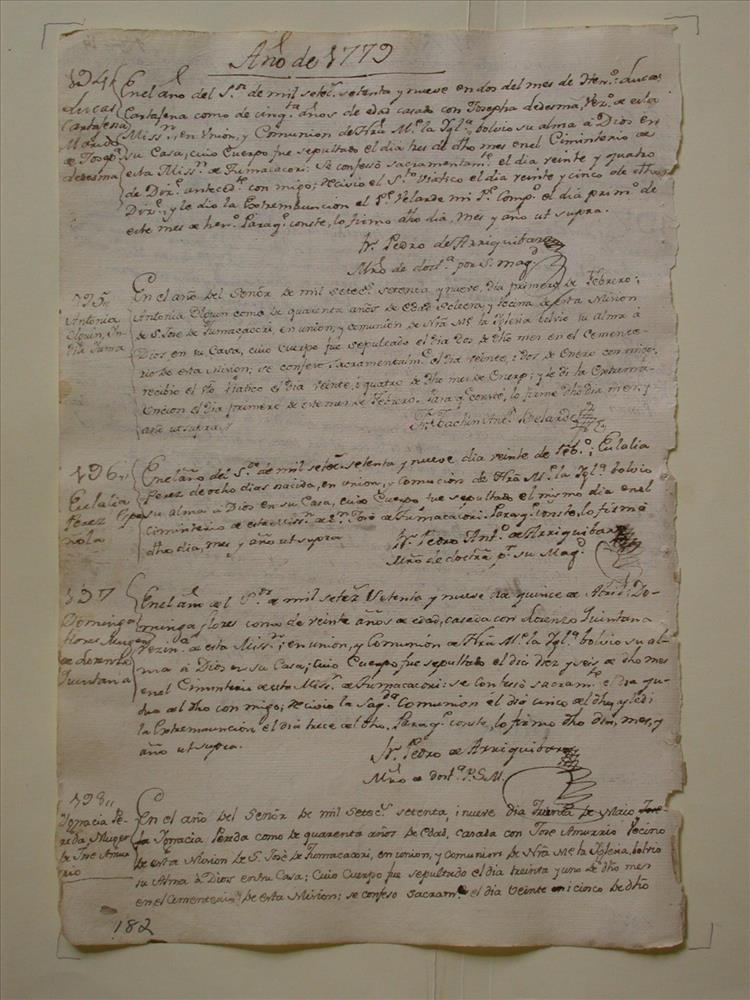 Año de 1779
194
Lucas
Cartagena
Marido
de Josepª
dezesma
En el año del Sʳ. de mil setecˢ. setenta y nueve en dos del mes de Henᵒ. Lucas
Cartagena como de cinqᵗᵃ años de edad casado con Josepha dezesma, Vezᵒ. de esta
Missⁿ., en Union, y Comunion de Nrâ Mᵉ. la Yglª. bolvio su alma à Dios en
su Casa; cuio Cuerpo fue sepultado el dia tres de dho mes en el Ciminterio de
esta Missⁿ. de Tumacacori: se confessò sacramentamᵗᵉ. el dia veinte y quatro
de Dizᵉ. antecedᵗᵉ. con migo; recivio el Sᵗᵒ. Viatico el dia veinte y cinco de dho
Dizᵉ., y le dio la Extremauncion el Pᵉ. Velarde mi Pᵉ. Compᵒ. el dia primᵒ. de
este mes de henᵒ. Paraqᵉ. conste, lo firmo dho dia, mes y año ut supra.
Fr. Pedro de Arriquibar
Mrô de doctª. por S. magᵈ.
195
Antonia
Olguin, Yn-
dia Yuma
En el año del Señòr de mil setecˢ. setenta y nueve, dia primero de Febrero;
Antonia Olguin como de quarenta años de edad soltera, y vecina de esta Mision
de S. Jose de Tumacacori, en union, y comunion de Nrâ Mᵉ la Yglesia bolvio su alma à
Dios en su Casa, cuio Cuerpo fue sepultado el dia dos de dho mes en el Cemente-
rio de esta Mision; se confesò sacramentalmᵗᵉ. el dia veinte, i dos de Enero con migo,
recibio el Sᵗᵒ. Viatico el dia veinte, i quatro de dho mes de Enero; y le di la Extrema-
Uncion el dia primero de este mes de Febrero. Para qᵉ conste, lo firme dho dia, mes, y
año ut supra.
Fr. Joachin Antᵒ. Belarde
196
Eulalia
Perez Espa-
ñola
En el año del Sᵒʳ. de mil setecˢ. setenta y nueve dia veinte de Febᵒ., Eulalia
Perez de ocho dias nacida, en union, y comunion de Nrâ Mᵉ. la Yglª. bolvio
su alma à Dios en su Casa, cuio Cuerpo fue sepultado el mismo dia en el
Ciminterio de esta Missⁿ. de Sⁿ. José de Tumacacori. Paraqᵉ. conste, lo firmè
dho dia, mes, y año ut supra
Fr. Pedro Antᵒ. de Arriquibar
Mrô de doctrª. pʳ. su Magᵈ.
197
Dominga
flores Muger
de Lorenzo
Quintana
En el año del Sᵒʳ. de mil setecˢ. Setenta y nueve dia quince de Abril; Do-
minga flores como de veinte años de edad, casada con Lorenzo Quintana
Vezinᵒˢ. de esta Missⁿ., en union, y Comunion de Nrâ Mᵉ. la Yglª. bolvio su al-
ma à Dios en su Casa; Cuio Cuerpo fue sepultado el dia diez y seis de dho mes
en el Ciminterio de esta Missⁿ. de Tumacacori: se confessò sacramᵗᵉ. el dia qua-
dro del dho con migo; recivio la Sagᵈᵃ. Comunion el dia cinco del dho, y le di
la Extremauncion el dia trece del dho. Paraqᵉ. conste, lo firmo dho dia, mes, y
año ut supra.
Fr. Pedro de Arriquibar
Mrô de doctª. P. S. M.
198
Ygnacia Pe-
reda Muger
de Jose Amu-
rrio
En el año del Señòr de mil setecˢ. setenta, i nueve dia treinta de Maio Jose-
fa Ygnacia Pereda como de quarenta años de edad, casada con Jose Amurrio Vecino
de esta Mision de S. Josè de Tumacacori, en union, y comunion de Nrâ Me la Yglesia, bolvio
su Alma à Dios en su Casa; Cuio Cuerpo fue sepultado el dia treinta y uno de dho mes
en el Cementerio de esta Mision; se confeso sacramᵗᵉ el dia veinte, i cinco de dho
182